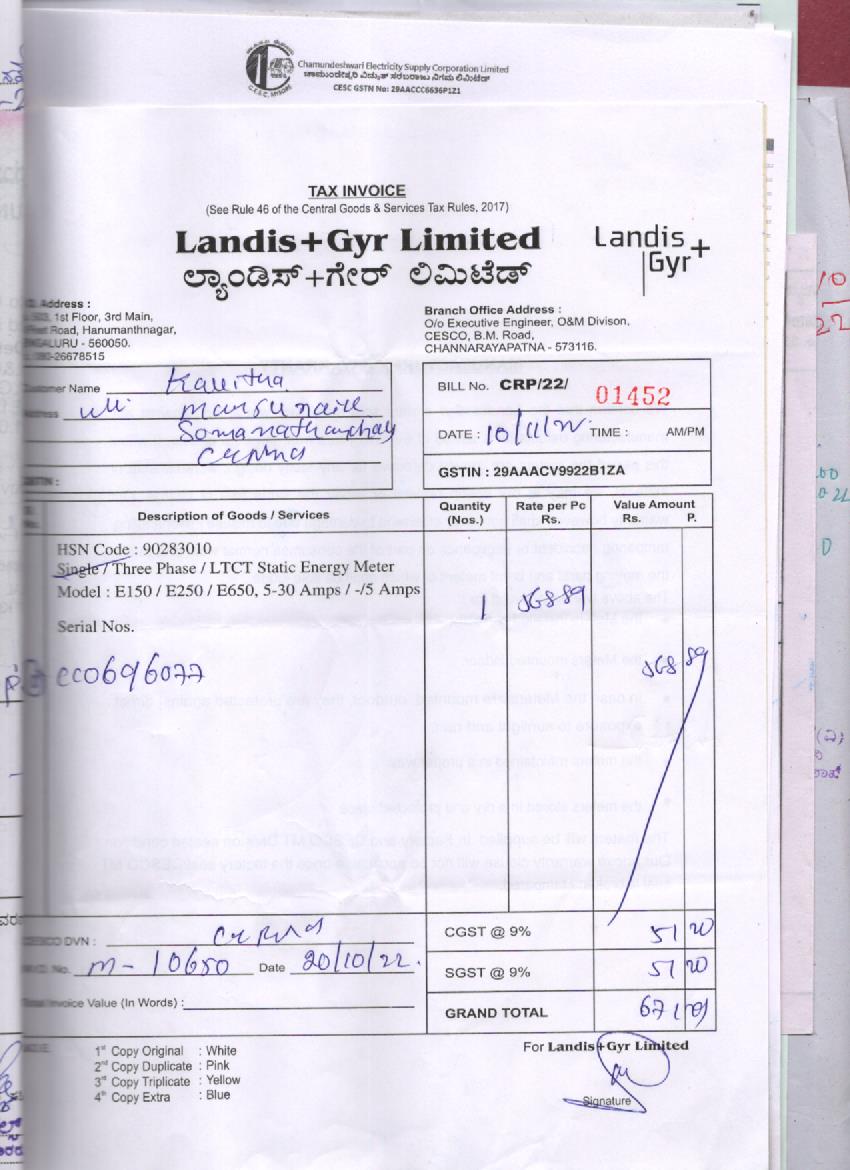 Chamundeshwari Electricity Supply Corporation Limited
ಚಾಮುಂಡೇಶ್ವರಿ ವಿದ್ಯುತ್ ಸರಬರಾಜು ನಿಗಮ ಲಿಮಿಟೆಡ್
CESC GSTN No: 29AACCC6636P1Z1
TAX INVOICE
(See Rule 46 of the Central Goods & Services Tax Rules, 2017)
Landis+Gyr Limited
ಲ್ಯಾಂಡಿಸ್+ಗೇರ್ ಲಿಮಿಟೆಡ್
Landis+
Gyr
Address :
1st Floor, 3rd Main,
Road, Hanumanthnagar,
- 560050.
-26678515
Branch Office Address :
O/o Executive Engineer, O&M Divison,
CESCO, B.M. Road,
CHANNARAYAPATNA - 573116.
Customer Name Kavitha
Address
BILL No. CRP/22/ 01452
DATE : 10/11/22 TIME : AM/PM
GSTIN :
GSTIN : 29AAACV9922B1ZA
Description of Goods / Services Quantity (Nos.) Rate per Pc Rs. Value Amount Rs. P.
HSN Code : 90283010
Single / Three Phase / LTCT Static Energy Meter
Model : E150 / E250 / E650, 5-30 Amps / -/5 Amps 1 568 89
Serial Nos.
568 89
CC0696077
CESCO DVN :
CGST @ 9% 51 20
No. M-10650 Date 20/10/22.
SGST @ 9% 51 20
Total Invoice Value (In Words) :
GRAND TOTAL 671
1st Copy Original : White
2nd Copy Duplicate : Pink
3rd Copy Triplicate : Yellow
4th Copy Extra : Blue
For Landis+Gyr Limited
Signature
10
22